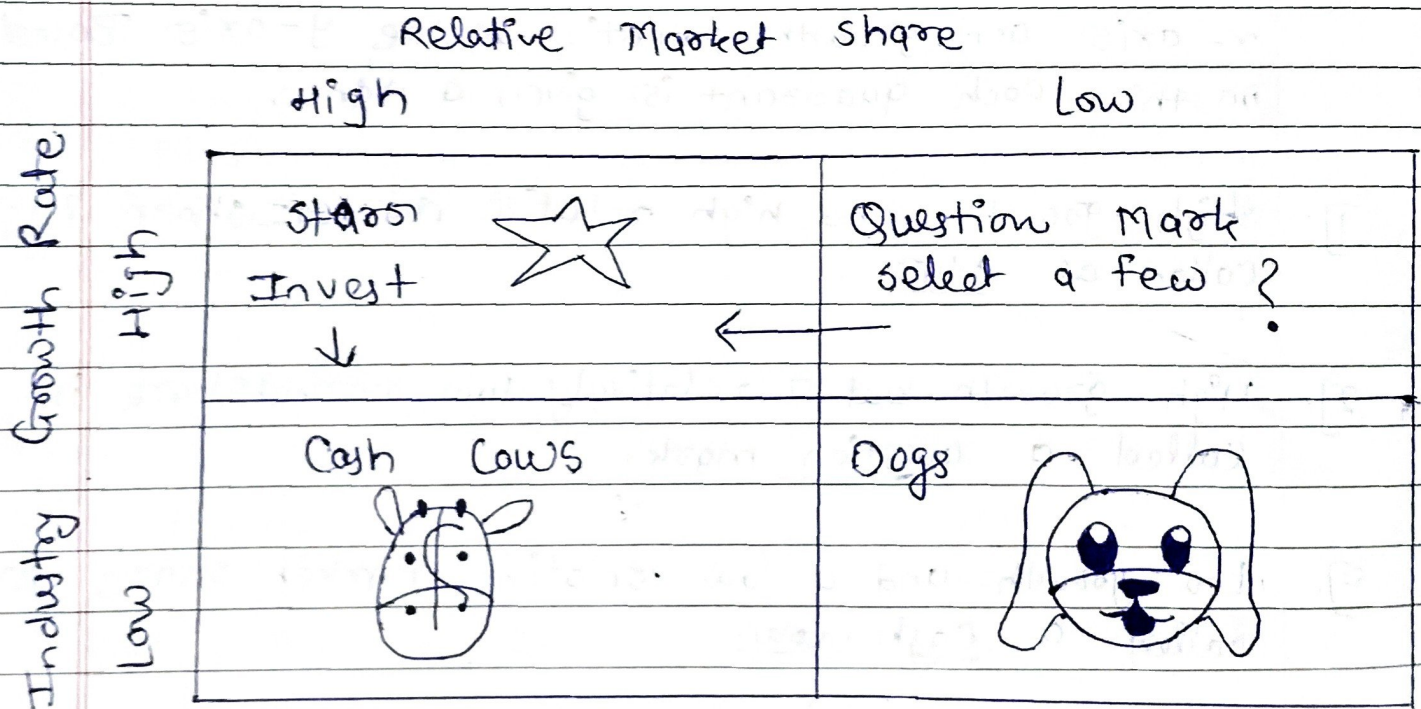 Relative Market Share
High Low
Industry Growth Rate
High
Stars
Invest
Question Mark
select a few ?
Low
Cash Cows
$
Dogs